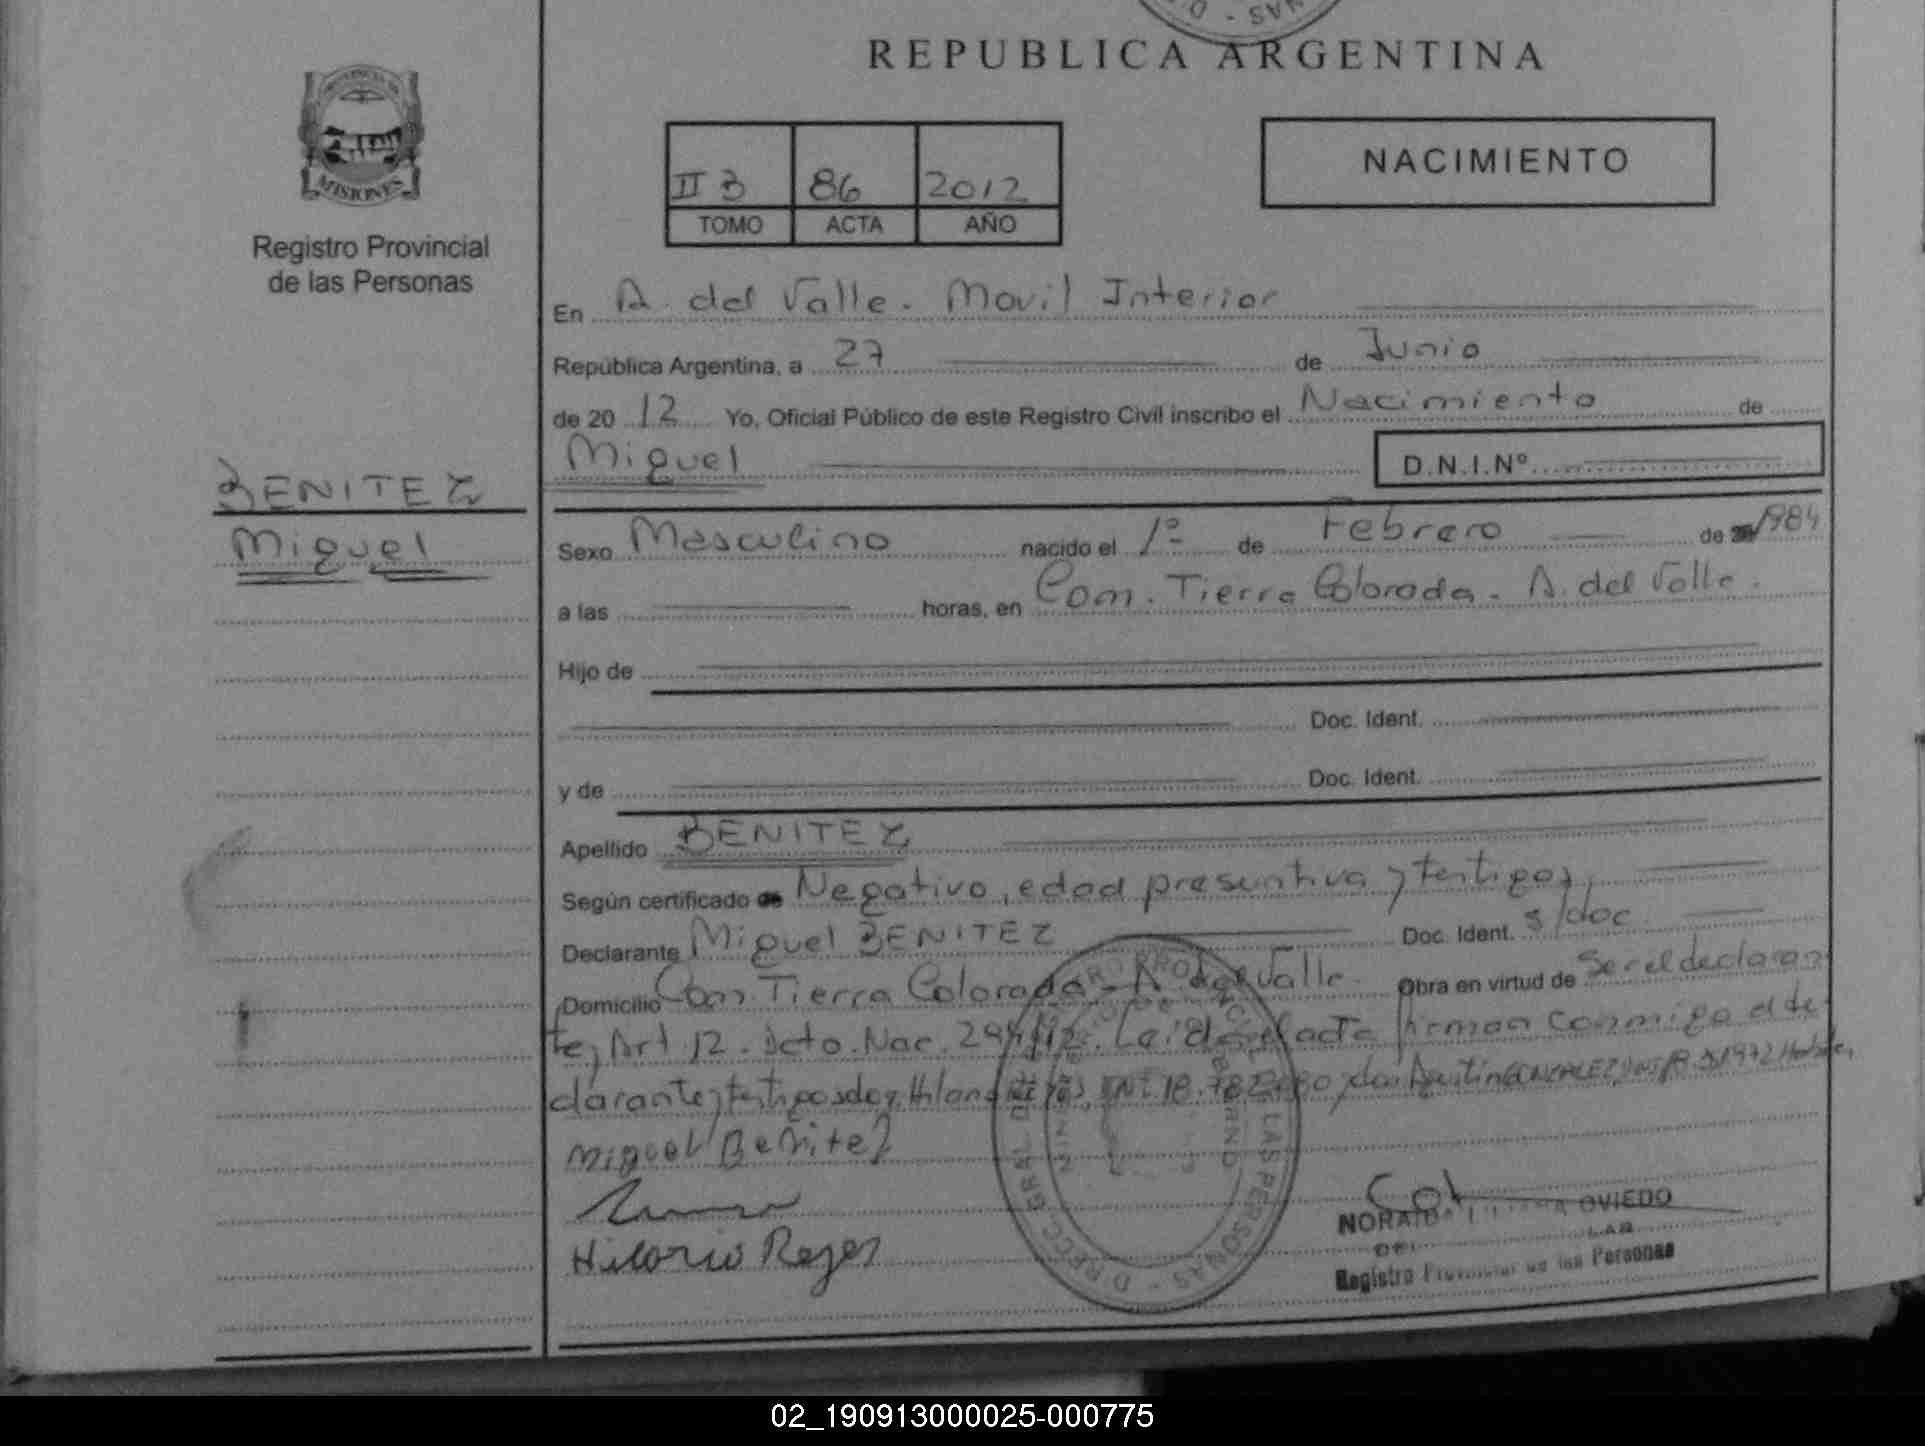 REPUBLICA ARGENTINA
MISIONES
Registro Provincial
de las Personas
II 3 86 2012
TOMO ACTA AÑO
NACIMIENTO
En A. del Valle. Movil Interior
República Argentina, a 27 de Junio
de 20 12 Yo, Oficial Público de este Registro Civil inscribo el Nacimiento de
Miguel
D.N.I.Nº
BENITEZ
Miguel
Sexo Masculino nacido el 1º de Febrero de 1984
a las horas, en Com. Tierra Colorada. A. del Valle.
Hijo de
Doc. Ident.
y de Doc. Ident.
Apellido BENITEZ
Según certificado de Negativo, edad presuntiva y testigos,
Declarante Miguel BENITEZ Doc. Ident. s/doc
Domicilio Com. Tierra Colorada - A. del Valle. Obra en virtud de Ser el declaran
te, Art 12. Dcto. Nac. Leída el acta firman conmigo el de
clarante y testigos 18.782 Agustin GONZALEZ
Miguel Benitez
Hilario Reyes
NORA OVIEDO
Registro Provincial de las Personas
02_190913000025-000775